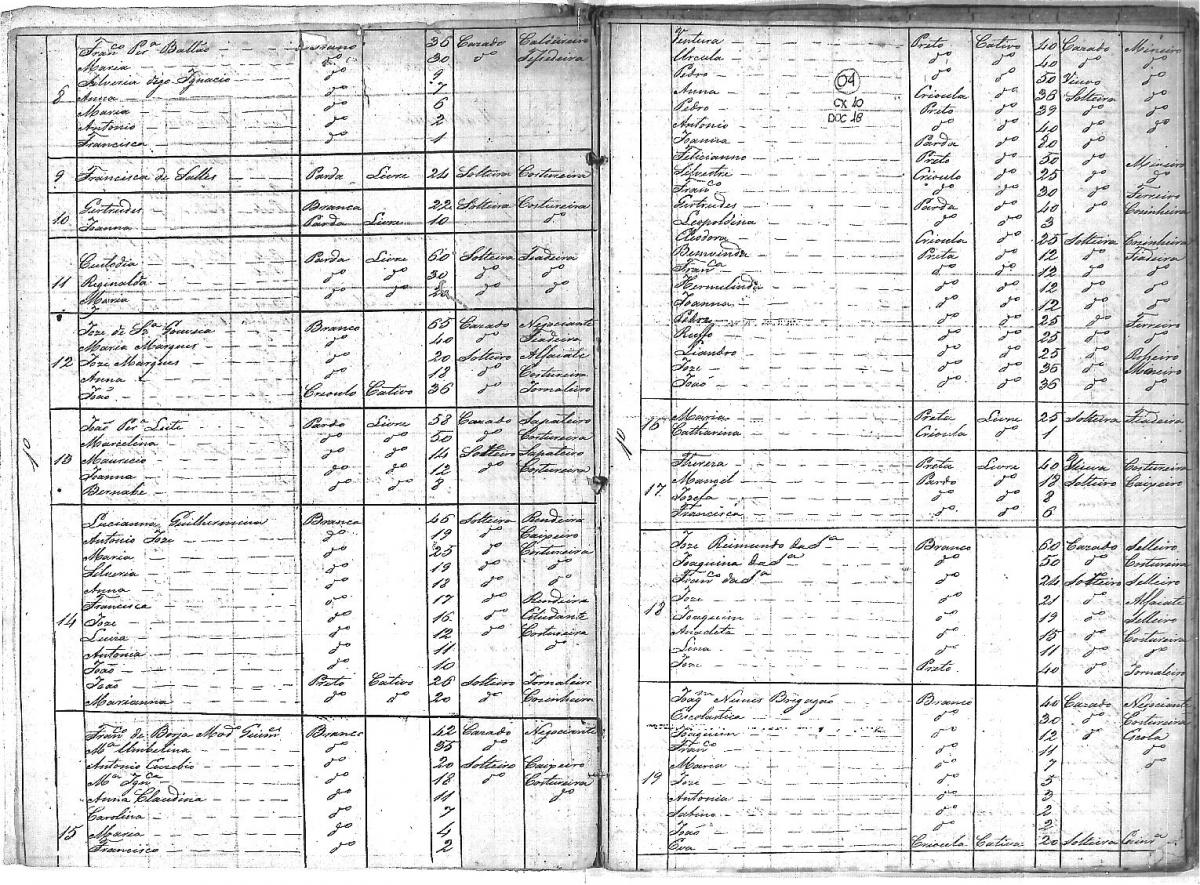 Franco Pera Ballão — 35 Cazado Caldereiro
Maria — do 30 do
Silveria — Ignacio — do 9
8 Anna — do 7
Maria — do 6
Antonio — do 2
Francisca — do 1
9 Francisca de Salles — Parda Livre 24 Solteira Costureira
Gertrudes — Branca 22 Solteira Costureira
10 Joanna — Parda Livre 10 do
Custodia — Parda Livre 60 Solteira Fiadeira
11 Reginalda — do do 30 do do
Maria — do do do do
Joze de Sa Gouveia — Branco 65 Cazado Negociante
Maria Marques — do 40 do Fiadeira
12 Joze Marques — do 20 Solteiro Alfaiate
Anna — do 18 do Costureira
João — Crioulo Cativo 36 do Jornaleiro
João Pera Leite — Pardo Livre 58 Cazado Sapateiro
Marcelina — do do 50 do Costureira
13 Mauricio — do do 14 Solteiro Sapateiro
Joanna — do do 12 do Costureira
Bernabe — do do 8
Lucianna Guilhermina — Branca 45 Solteira Rendeira
Antonio Joze — do 19 do Caixeiro
Maria — do 25 do Costureira
Silveria — do 19 do do
Anna — do 18 do do
Francisca — do 17 do Rendeira
14 Joze — do 16 do Estudante
Luiza — do 12 do Costureira
Antonia — do 11 do
João — do 10
João — Preto Cativo 26 Solteiro Jornaleiro
Marianna — do do 20 do Cozinheira
Franco de Borja Mad Guims — Branco 42 Cazado Negociante
Ma Umbelina — do 35 do
Antonio Euzebio — do 20 Solteiro Caixeiro
Ma Igca — do 18 do Costureira
Anna Claudina — do 11 do
Carolina — do 7
15 Maria — do 4
Francisco — do 2
10
Ventura — Preto Cativo 40 Cazado Mineiro
Urcula — do do 40 do do
Pedro — do do 50 Viuvo do
Anna — Crioula do 36 Solteira do
Pedro — Preto do 39 do do
Antonio — do do 40 do do
Joanna — Parda do 20 do
Felicianno — Preto do 50 do Mineiro
Silvestre — Crioulo do 25 do do
Franco — do do 30 do Ferreiro
Gertrudes — Parda do 40 do Cozinheira
Leopoldina — do do 3
Eleodora — Crioula do 25 Solteira Cozinheira
Bemvinda — Preta do 12 do Fiadeira
Franca — do do 12 do do
Hermelinda — do do 12 do do
Joanna — do do 12 do do
Pedro — do do 25 do Ferreiro
Ruffo — do do 25 do do
Liandro — do do 25 do Ropeiro
Joze — do do 36 do Mineiro
João — do do 36 do do
04
CX 10
DOC 18
16 Maria — Preta Livre 25 Solteira Fiadeira
Catharina — Crioula do 1
Thereza — Preta Livre 40 Viuva Costureira
Manoel — Pardo do 18 Solteiro Caixeiro
17 Jozefa — do do 8
Francisca — do do 6
Joze Reimundo da Sa — Branco 60 Cazado Selleiro
Joaquina da Sa — do 50 do Costureira
Franco da Sa — do 24 Solteiro Selleiro
Joze — do 21 do Alfaiate
18 Joaquim — do 19 do Selleiro
Anacleta — do 15 do Costureira
Lina — do 11 do do
Joze — Preto 40 do Jornaleiro
Joaqm Nunes Brigagão — Branco 40 Cazado Negociante
Escolastica — do 30 do Costureira
Joaquim — do 12 do Escola
Franco — do 11 do
Maria — do 7 do
19 Joze — do 5
Antonia — do 3
Sabino — do 2
João — do 2
Eva — Crioula Cativa 20 Solteira Cozinra
10